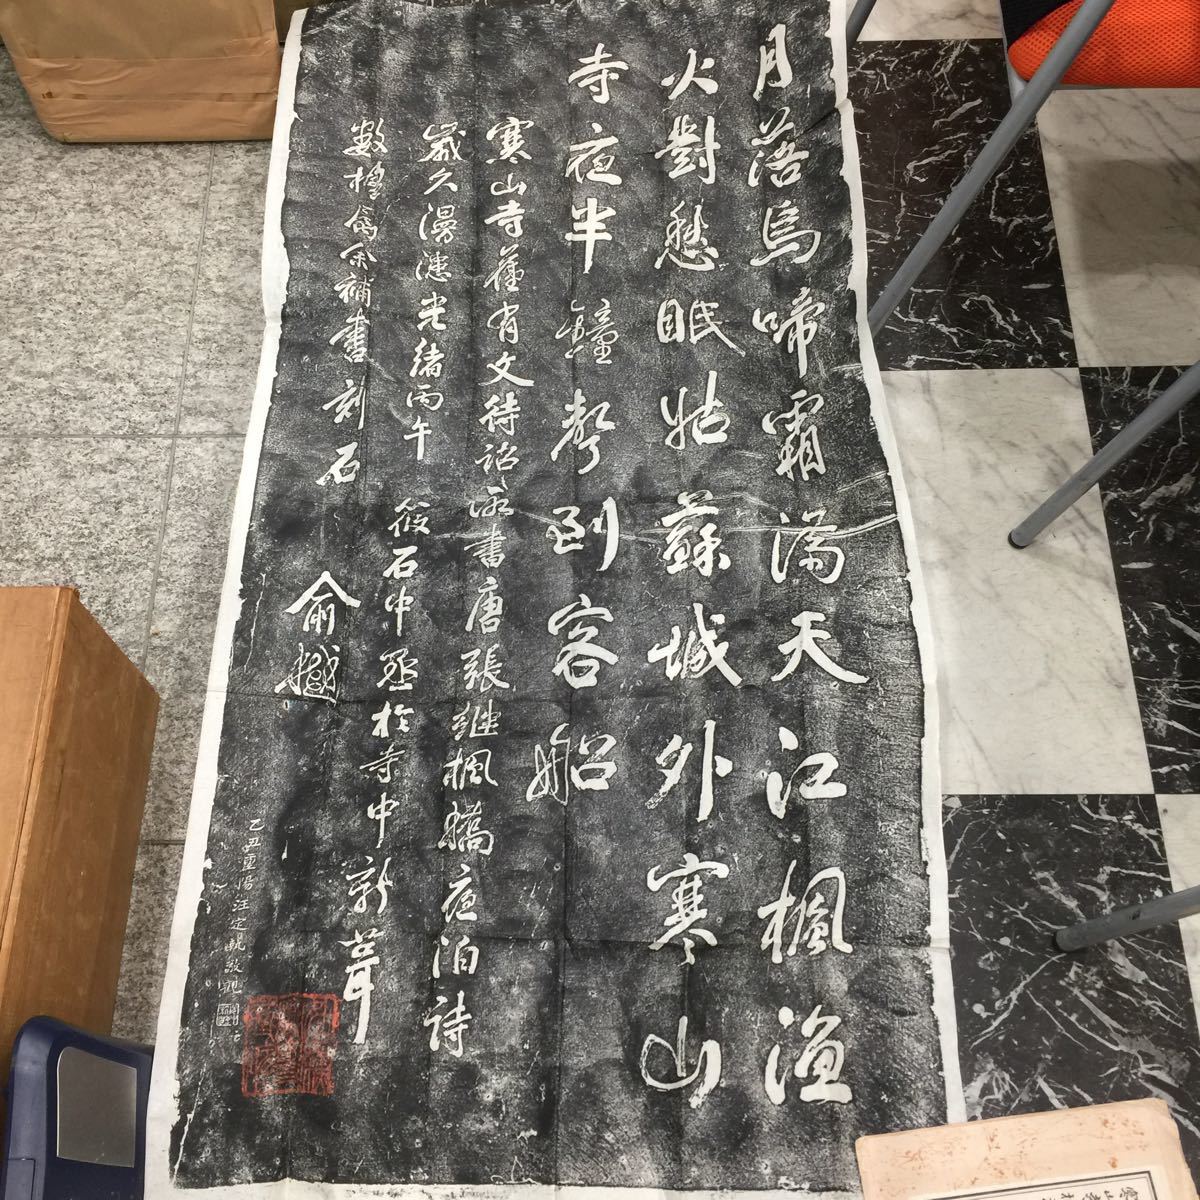 月落烏啼霜滿天江楓漁
火對愁眠姑蘇城外寒山
寺夜半鐘聲到客船
寒山寺舊有文待詔所書唐張繼楓橋夜泊詩
歲久漫漶光緒丙午
筱石中丞於寺中新葺
數楹屬余補書刻石
俞樾
乙丑靈陽汪定執敬觀